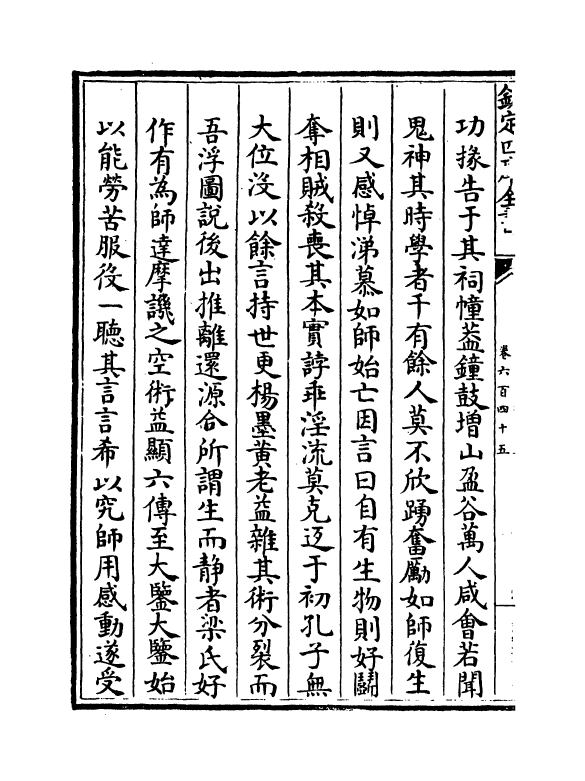 欽定四庫全書
卷六百四十五
功掾告于其祠幢葢鐘鼓增山盈谷萬人咸會若聞
鬼神其時學者千有餘人莫不欣踴奮厲如師復生
則又感悼涕慕如師始亡因言曰自有生物則好鬭
奪相賊殺喪其本實誖乖淫流莫克返于初孔子無
大位没以餘言持世更楊墨黄老益雜其術分裂而
吾浮圖說後出推離還源合所謂生而静者梁氏好
作有為師達摩譏之空術益顯六傳至大鑒大鑒始
以能勞苦服役一聽其言言希以究師用感動遂受